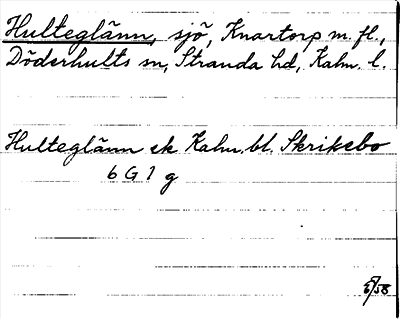 Hulteglänn, sjö, Knartorp m. fl.,
Döderhults sn, Stranda hd, Kalm. l.
Hulteglänn ek Kalm. bl. Skriksbo
6 G 1 g